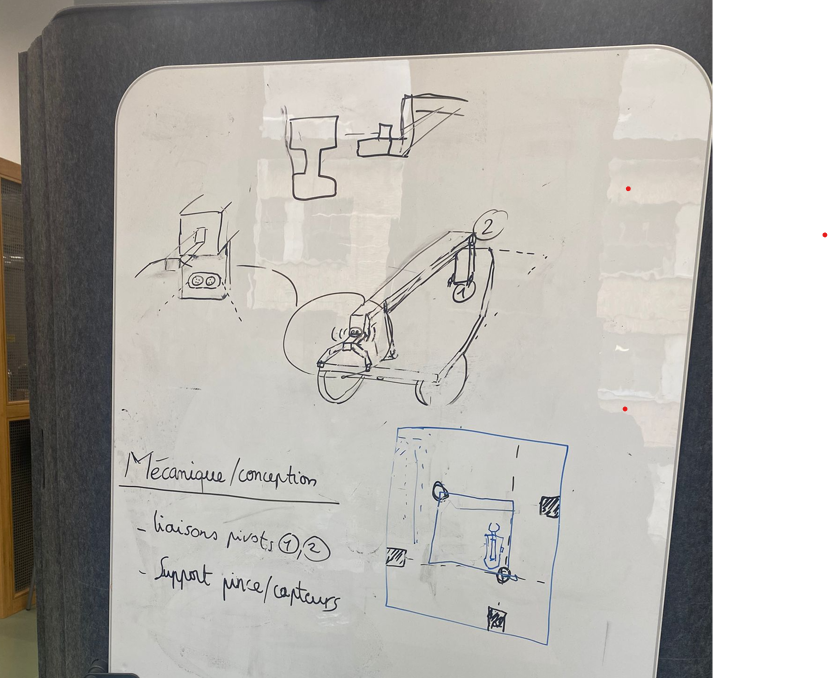 2
1
Mécanique/conception
- liaisons pivots 1, 2
- Support pince/capteurs